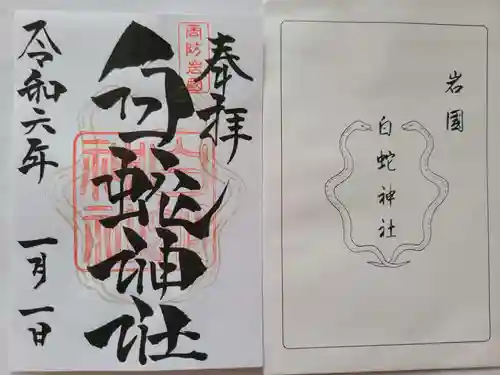 奉拝
周防岩國
白蛇神社
令和六年 一月一日
岩国
白蛇神社